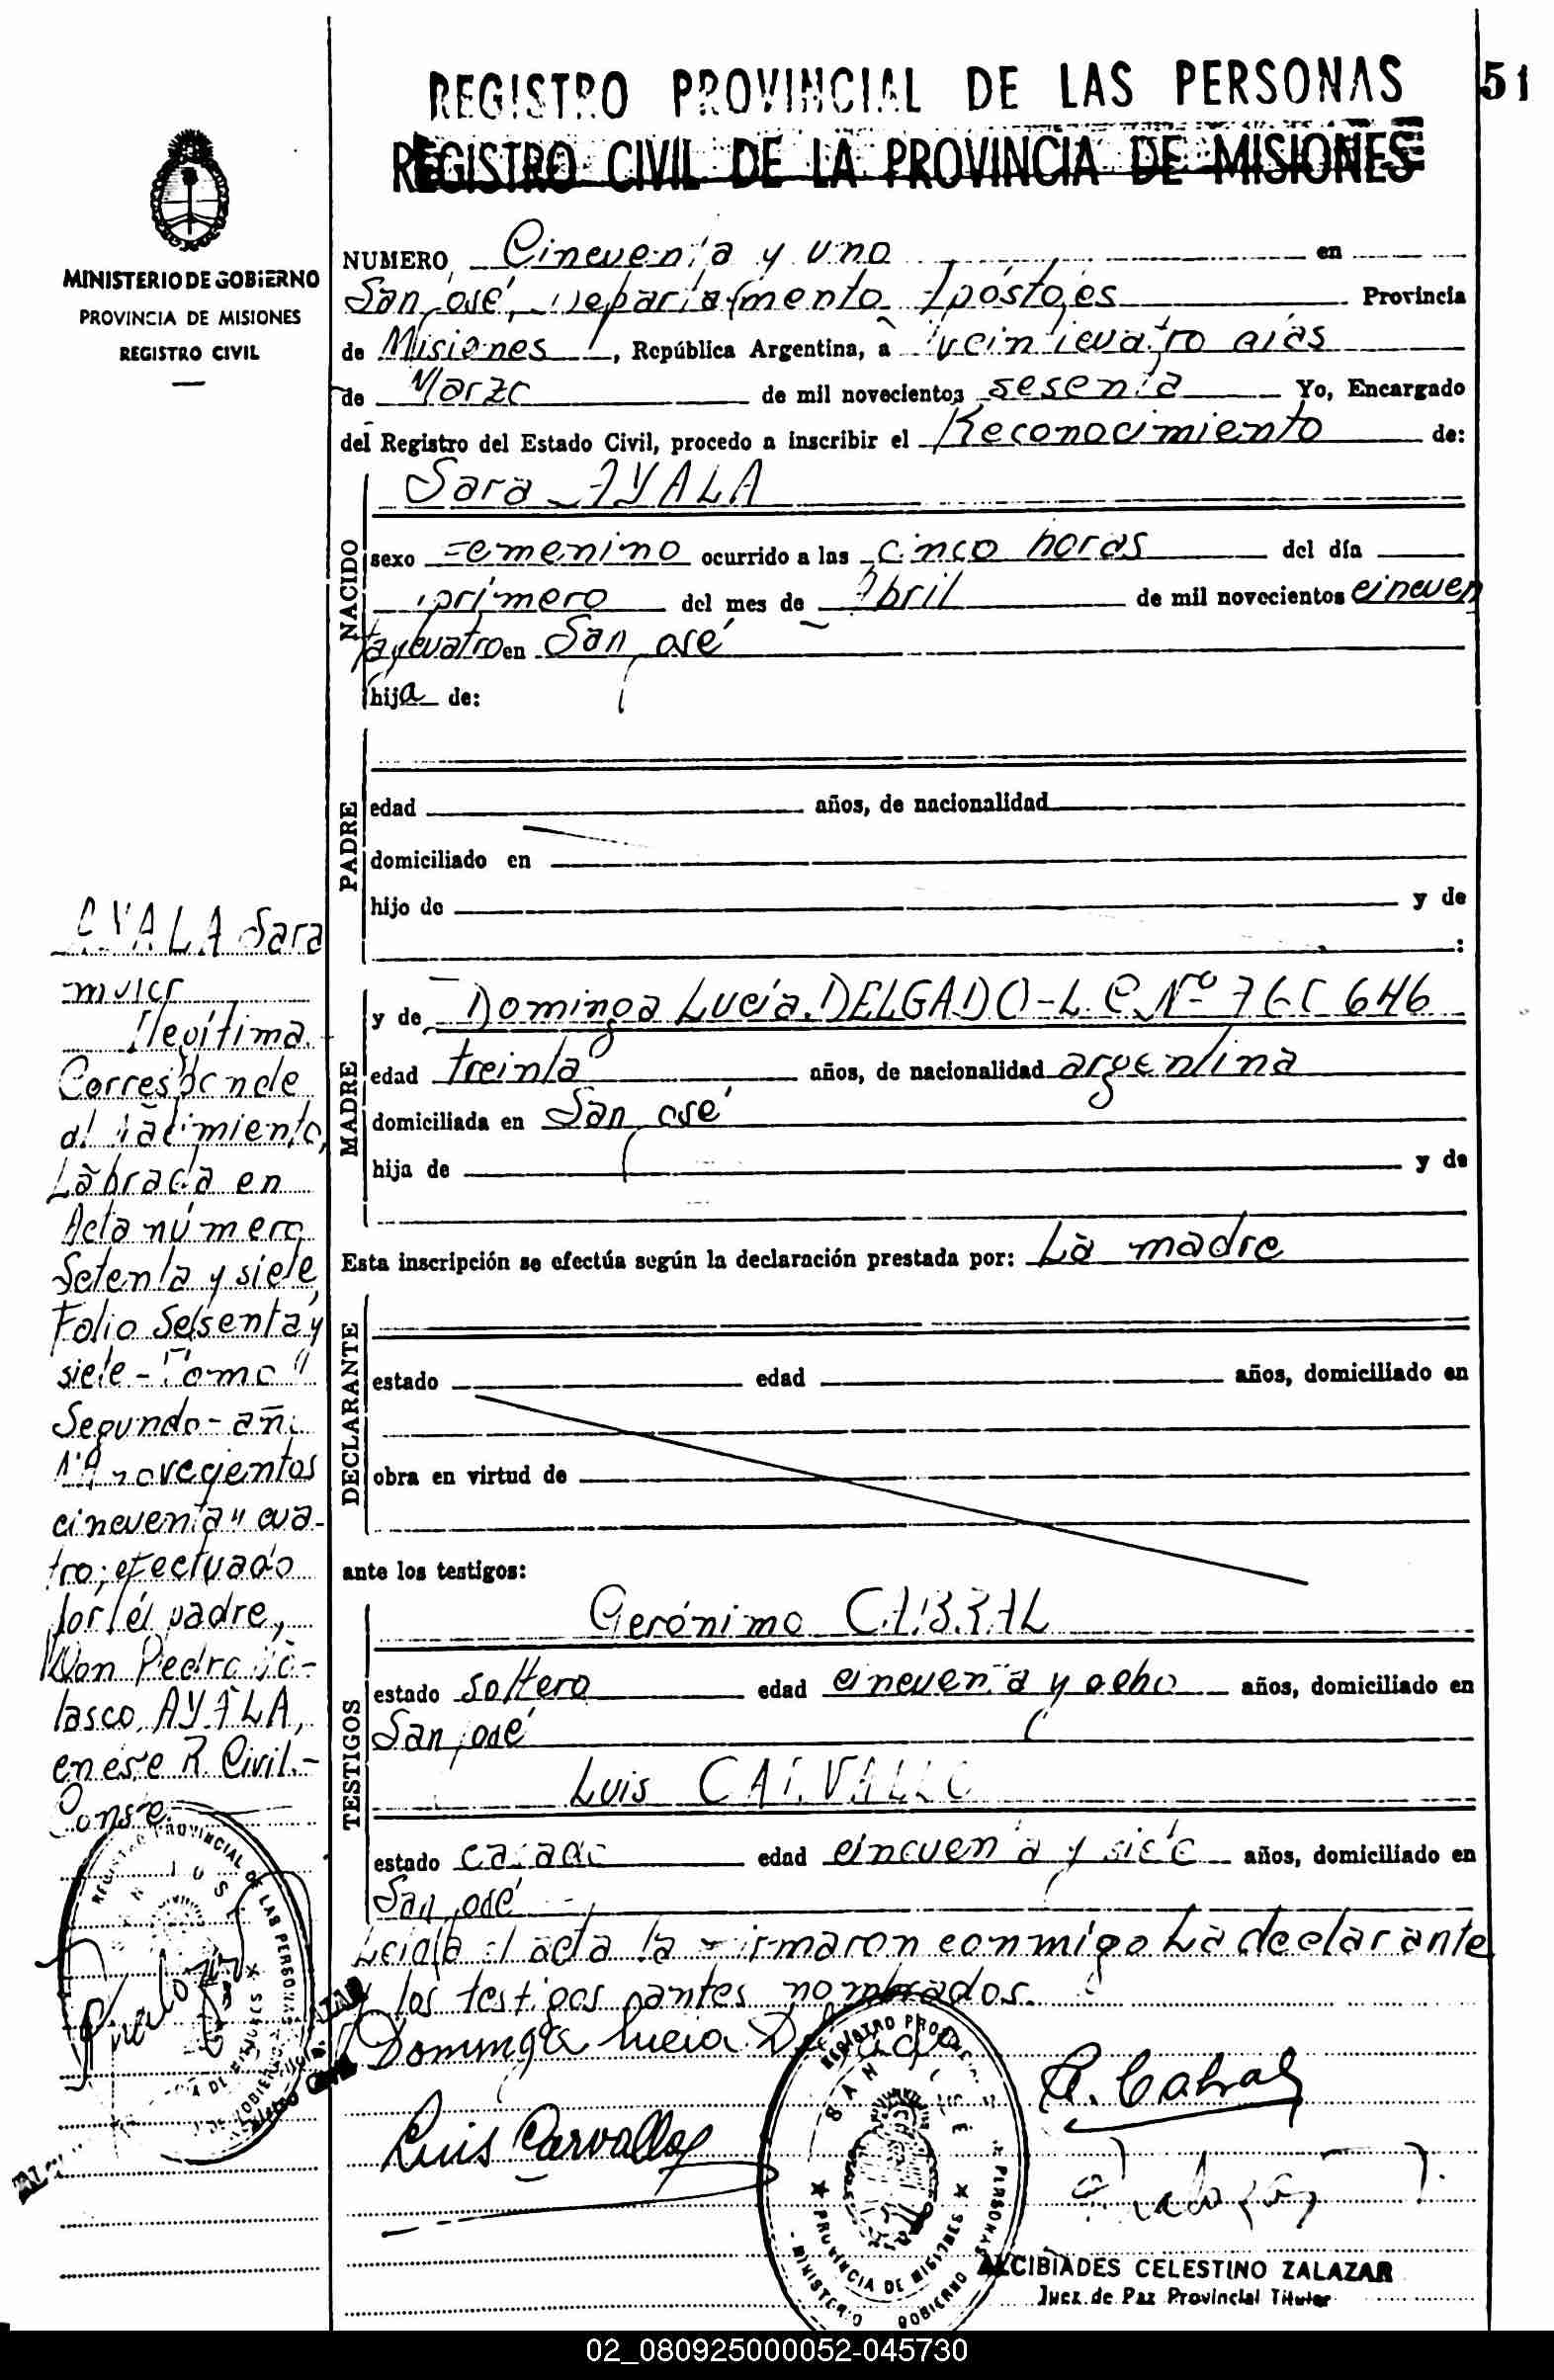 51
REGISTRO PROVINCIAL DE LAS PERSONAS
REGISTRO CIVIL DE LA PROVINCIA DE MISIONES
MINISTERIO DE GOBIERNO
PROVINCIA DE MISIONES
REGISTRO CIVIL
NUMERO Cincuenta y uno en
San José, Departamento Apóstoles Provincia
de Misiones, República Argentina, a veinticuatro días
de Marzo de mil novecientos sesenta Yo, Encargado
del Registro del Estado Civil, procedo a inscribir el Reconocimiento de:
NACIDO
Sara AYALA
sexo Femenino ocurrido a las cinco horas del día
primero del mes de Abril de mil novecientos cincuen
ta y cuatro en San José
hija de:
PADRE
edad años, de nacionalidad
domiciliado en
hijo de y de
:
MADRE
y de Dominga Lucía DELGADO - L.C. Nº 646
edad treinta años, de nacionalidad argentina
domiciliada en San José
hija de y de
Esta inscripción se efectúa según la declaración prestada por: La madre
DECLARANTE
estado edad años, domiciliado en
obra en virtud de
ante los testigos:
TESTIGOS
Gerónimo CABRAL
estado soltero edad cincuenta y ocho años, domiciliado en
San José
Luis CARVALLO
estado casado edad cincuenta y siete años, domiciliado en
San José
Leida el acta la firmaron conmigo La declarante
y los testigos antes nombrados.
Dominga Lucia Delgado
G. Cabral
Luis Carvallo
REGISTRO PROVINCIAL DE LAS PERSONAS
SAN JOSE
PROVINCIA DE MISIONES
MINISTERIO GOBIERNO
ALCIBIADES CELESTINO ZALAZAR
Juez de Paz Provincial Titular
AYALA Sara
mujer
Ilegítima.
Corresponde
al nacimiento,
Labrada en
Acta número
Setenta y siete,
Folio Sesenta y
siete - Tomo
Segundo - año
novecientos
cincuenta y cua-
tro; efectuado
por el padre,
Don Pedro No-
lasco AYALA,
en ese R. Civil.-
Conste.
REGISTRO PROVINCIAL DE LAS PERSONAS
02_080925000052-045730